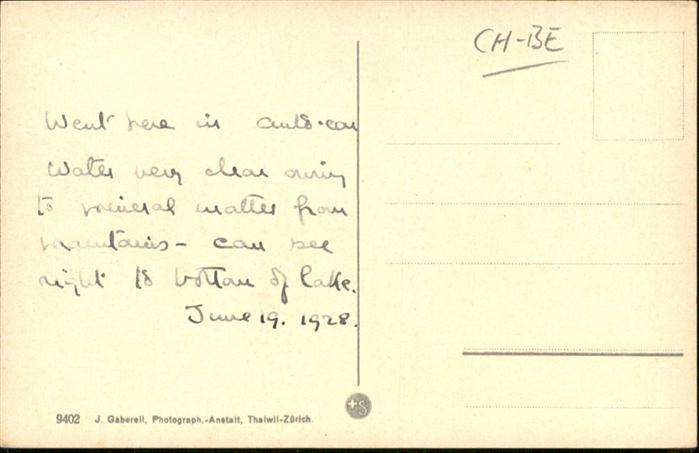 CH-BE
Went here in auto-car
Water very clear owing
to mineral matter from
mountains - can see
right to bottom of lake.
June 19. 1928.
9402 J. Gaberell, Photograph.-Anstalt, Thalwil-Zürich.